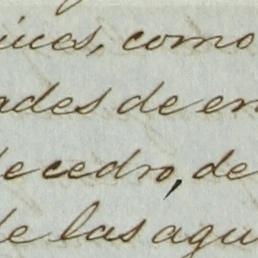 como
ades de en
de cedro, de
de las agu